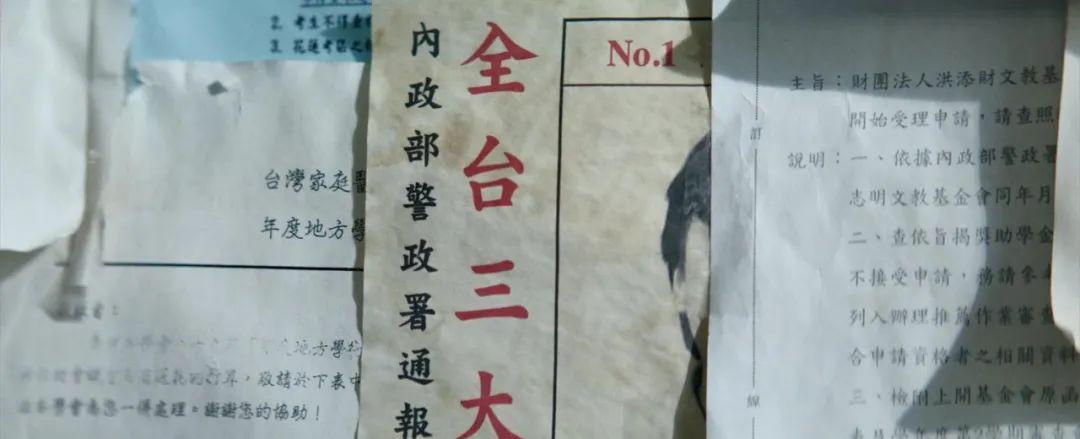 2. 考生不得
3. 花蓮考區之
台灣家庭
年度地方學
地方學科
敬請於下表中
一併處理。謝謝您的協助！
內政部警政署通報
全台三大
No.1
主旨：財團法人洪添財文教基
開始受理申請，請查照
說明：一、依據內政部警政署
志明文教基金會同年月
二、查依旨揭獎助學金
不接受申請，務請參
列入辦理推薦作業審查
合申請資格者之相關資料
三、檢附上開基金會原函
訂
線